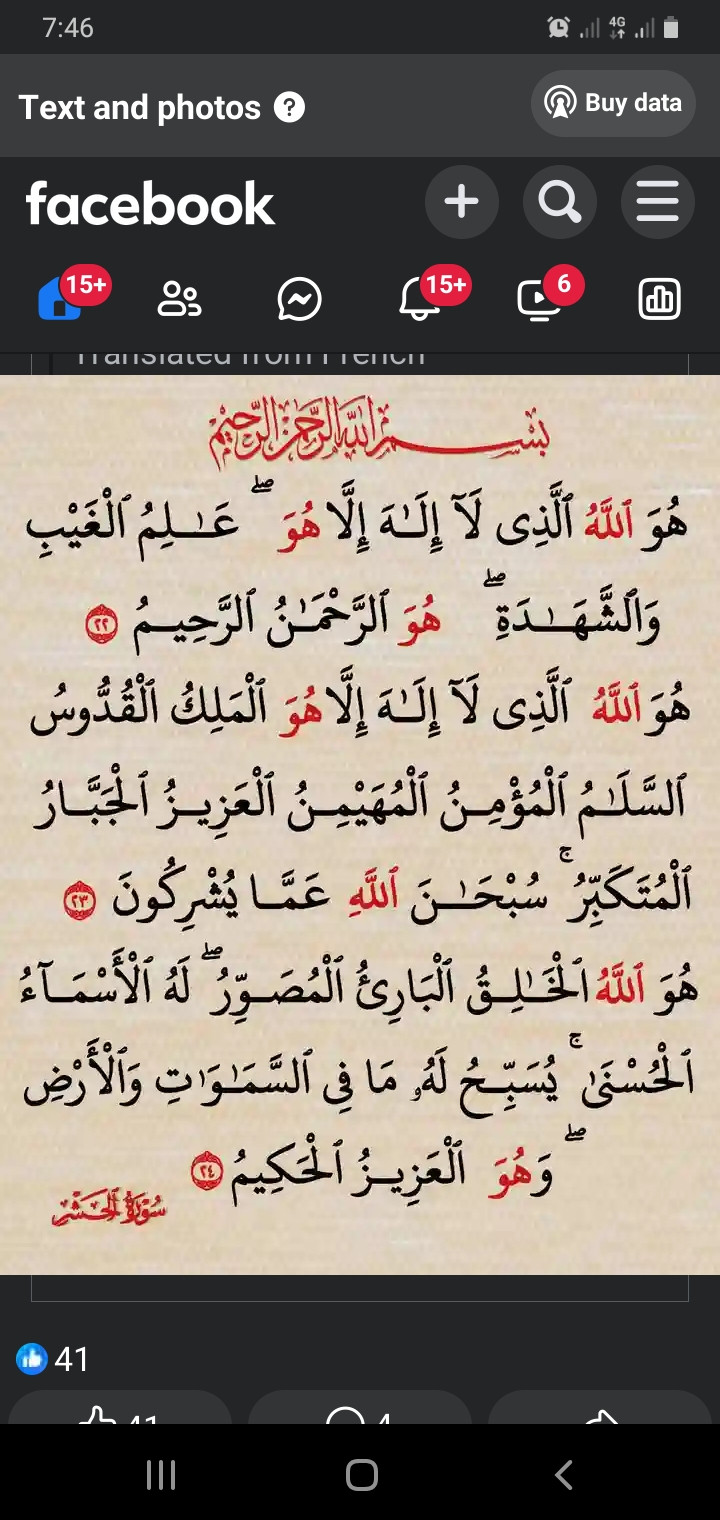 7:46
4G
Text and photos ?
Buy data
facebook
15+
15+
6
Translated from French
بِسْمِ ٱللَّهِ ٱلرَّحْمَٰنِ ٱلرَّحِيمِ
هُوَ ٱللَّهُ ٱلَّذِى لَآ إِلَـٰهَ إِلَّا هُوَ ۖ عَـٰلِمُ ٱلْغَيْبِ
وَٱلشَّهَـٰدَةِ ۖ هُوَ ٱلرَّحْمَـٰنُ ٱلرَّحِيمُ ٢٢
هُوَ ٱللَّهُ ٱلَّذِى لَآ إِلَـٰهَ إِلَّا هُوَ ٱلْمَلِكُ ٱلْقُدُّوسُ
ٱلسَّلَـٰمُ ٱلْمُؤْمِنُ ٱلْمُهَيْمِنُ ٱلْعَزِيزُ ٱلْجَبَّارُ
ٱلْمُتَكَبِّرُ ۚ سُبْحَـٰنَ ٱللَّهِ عَمَّا يُشْرِكُونَ ٢٣
هُوَ ٱللَّهُ ٱلْخَـٰلِقُ ٱلْبَارِئُ ٱلْمُصَوِّرُ ۖ لَهُ ٱلْأَسْمَآءُ
ٱلْحُسْنَىٰ ۚ يُسَبِّحُ لَهُۥ مَا فِى ٱلسَّمَـٰوَٰتِ وَٱلْأَرْضِ
ۖ وَهُوَ ٱلْعَزِيزُ ٱلْحَكِيمُ ٢٤
سُورَةُ ٱلْحَشْرِ
41
41
4